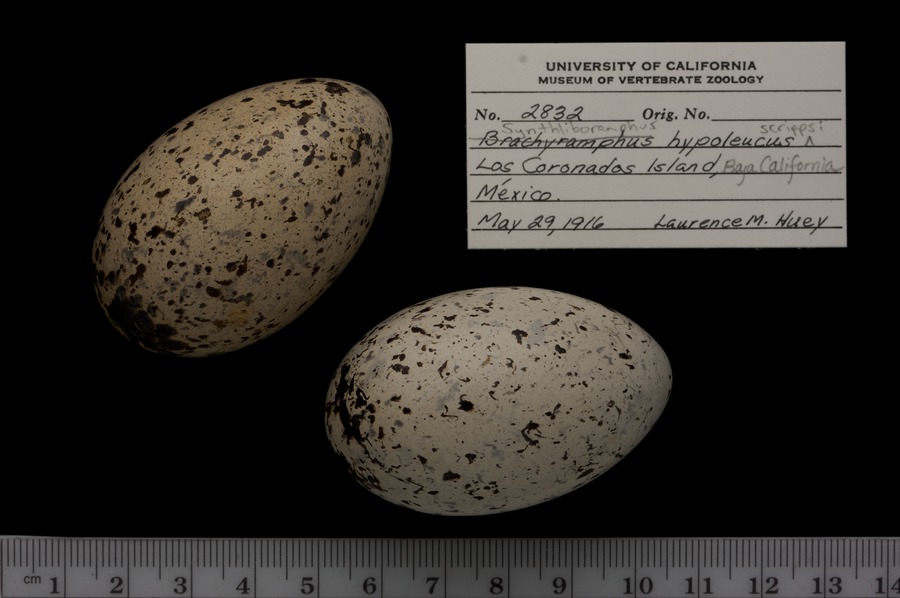 UNIVERSITY OF CALIFORNIA
MUSEUM OF VERTEBRATE ZOOLOGY
No. 2832 Orig. No.
Synthliboramphus scrippsi
Brachyramphus hypoleucus ^
Los Coronados Island, Baja California
México.
May 29, 1916 Laurence M. Huey
cm 1 2 3 4 5 6 7 8 9 10 11 12 13 14